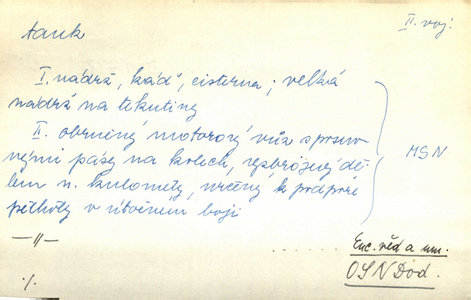 tank
II. voj.
I. nádrž, káď", cisterna; velká
nádrž na tekutiny
II. obrněný motorový vůz s prsuv-
nými pásy na kolech, vyzbrojený dě-
lem n. kulomety, určený k podpoře
pěchoty v útočném boji
MSN
—"—
Enc. věd a um.
OSN Dod.
·/.